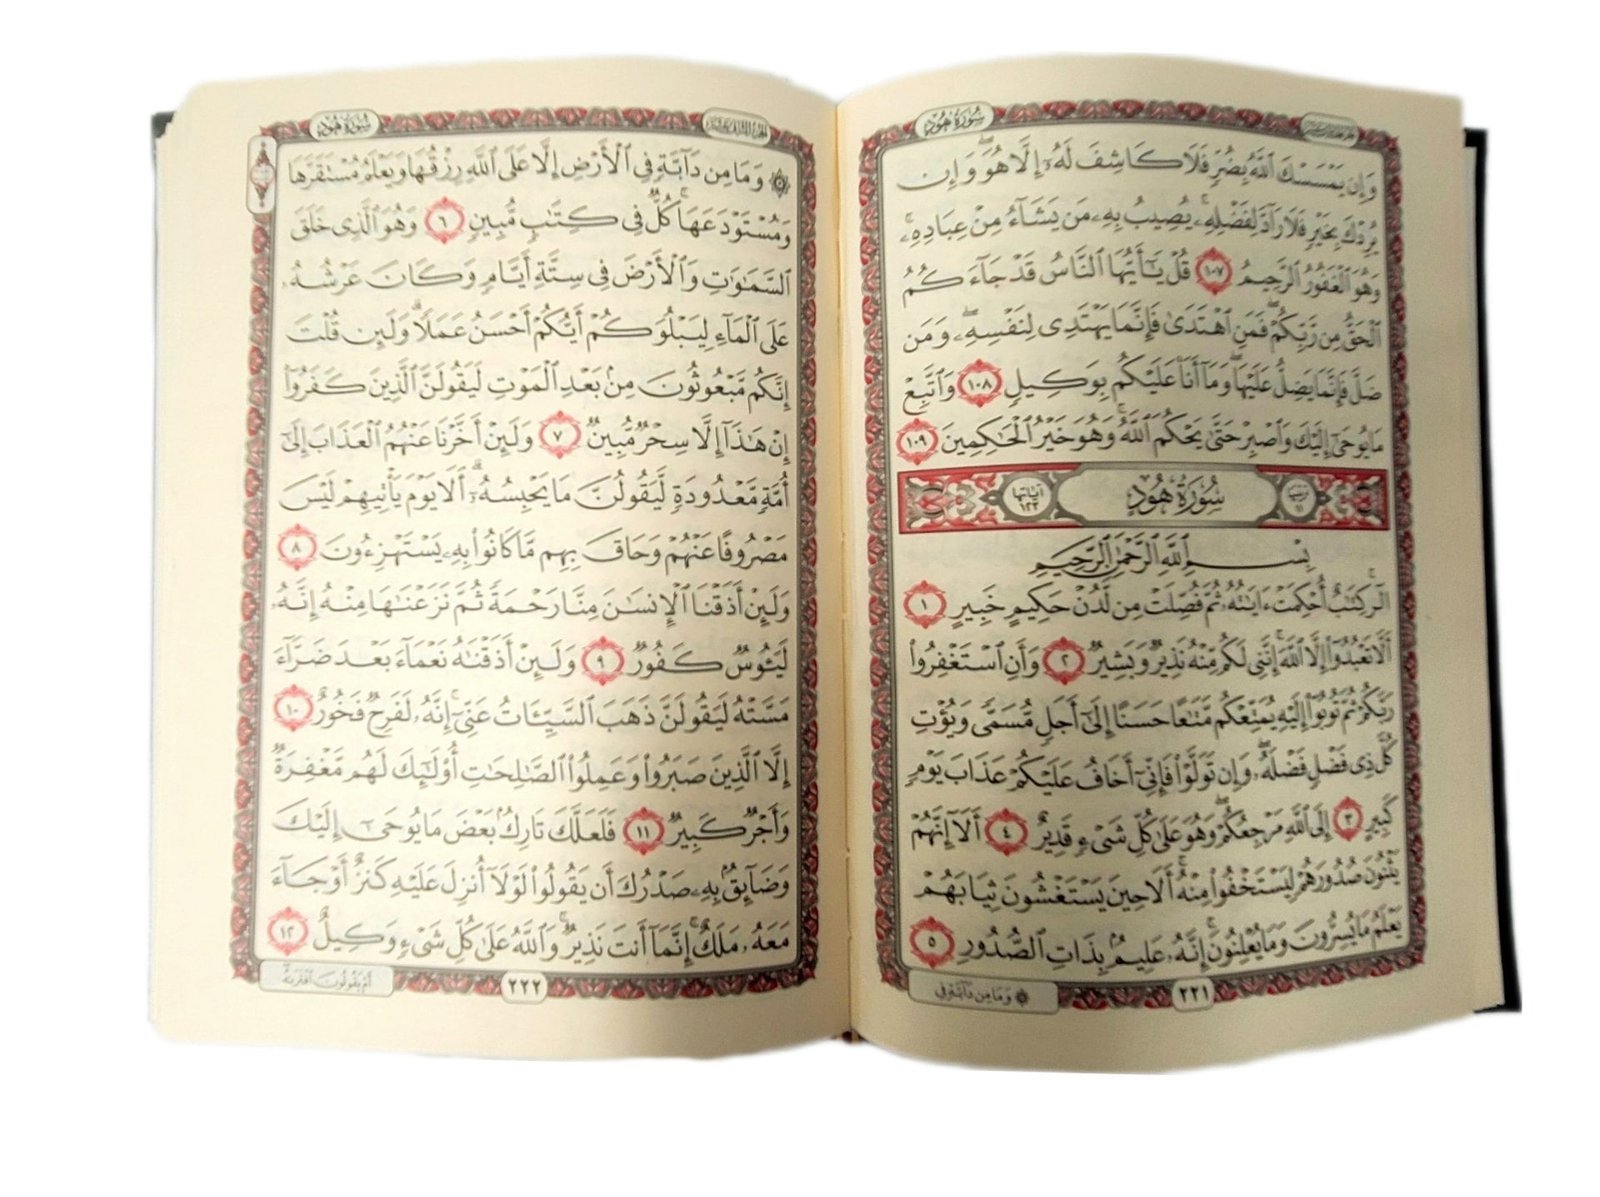 سُورَةُ هُودٍ
وَإِن يَمْسَسْكَ ٱللَّهُ بِضُرٍّ فَلَا كَاشِفَ لَهُۥٓ إِلَّا هُوَۖ وَإِن
يُرِدْكَ بِخَيْرٍ فَلَا رَآدَّ لِفَضْلِهِۦۚ يُصِيبُ بِهِۦ مَن يَشَآءُ مِنْ عِبَادِهِۦۚ
وَهُوَ ٱلْغَفُورُ ٱلرَّحِيمُ ١٠٧ قُلْ يَٰٓأَيُّهَا ٱلنَّاسُ قَدْ جَآءَكُمُ
ٱلْحَقُّ مِن رَّبِّكُمْۖ فَمَنِ ٱهْتَدَىٰ فَإِنَّمَا يَهْتَدِى لِنَفْسِهِۦۖ وَمَن
ضَلَّ فَإِنَّمَا يَضِلُّ عَلَيْهَاۖ وَمَآ أَنَا۠ عَلَيْكُم بِوَكِيلٍ ١٠٨ وَٱتَّبِعْ
مَا يُوحَىٰٓ إِلَيْكَ وَٱصْبِرْ حَتَّىٰ يَحْكُمَ ٱللَّهُۚ وَهُوَ خَيْرُ ٱلْحَٰكِمِينَ ١٠٩
سُورَةُ هُودٍ
آيَاتُهَا ١٢٣
بِسْمِ ٱللَّهِ ٱلرَّحْمَٰنِ ٱلرَّحِيمِ
الٓرۚ كِتَٰبٌ أُحْكِمَتْ ءَايَٰتُهُۥ ثُمَّ فُصِّلَتْ مِن لَّدُنْ حَكِيمٍ خَبِيرٍ ١
أَلَّا تَعْبُدُوٓا۟ إِلَّا ٱللَّهَۚ إِنَّنِى لَكُم مِّنْهُ نَذِيرٌ وَبَشِيرٌ ٢ وَأَنِ ٱسْتَغْفِرُوا۟
رَبَّكُمْ ثُمَّ تُوبُوٓا۟ إِلَيْهِ يُمَتِّعْكُم مَّتَٰعًا حَسَنًا إِلَىٰٓ أَجَلٍ مُّسَمًّى وَيُؤْتِ
كُلَّ ذِى فَضْلٍ فَضْلَهُۥۖ وَإِن تَوَلَّوْا۟ فَإِنِّىٓ أَخَافُ عَلَيْكُمْ عَذَابَ يَوْمٍ
كَبِيرٍ ٣ إِلَى ٱللَّهِ مَرْجِعُكُمْۖ وَهُوَ عَلَىٰ كُلِّ شَىْءٍ قَدِيرٌ ٤ أَلَآ إِنَّهُمْ
يَثْنُونَ صُدُورَهُمْ لِيَسْتَخْفُوا۟ مِنْهُۚ أَلَا حِينَ يَسْتَغْشُونَ ثِيَابَهُمْ
يَعْلَمُ مَا يُسِرُّونَ وَمَا يُعْلِنُونَۚ إِنَّهُۥ عَلِيمٌۢ بِذَاتِ ٱلصُّدُورِ ٥
٢٢١
۞ وَمَا مِن دَآبَّةٍ فِى
سُورَةُ هُودٍ
۞ وَمَا مِن دَآبَّةٍ فِى ٱلْأَرْضِ إِلَّا عَلَى ٱللَّهِ رِزْقُهَا وَيَعْلَمُ مُسْتَقَرَّهَا
وَمُسْتَوْدَعَهَاۚ كُلٌّ فِى كِتَٰبٍ مُّبِينٍ ٦ وَهُوَ ٱلَّذِى خَلَقَ
ٱلسَّمَٰوَٰتِ وَٱلْأَرْضَ فِى سِتَّةِ أَيَّامٍ وَكَانَ عَرْشُهُۥ
عَلَى ٱلْمَآءِ لِيَبْلُوَكُمْ أَيُّكُمْ أَحْسَنُ عَمَلًاۗ وَلَئِن قُلْتَ
إِنَّكُم مَّبْعُوثُونَ مِنۢ بَعْدِ ٱلْمَوْتِ لَيَقُولَنَّ ٱلَّذِينَ كَفَرُوٓا۟
إِنْ هَٰذَآ إِلَّا سِحْرٌ مُّبِينٌ ٧ وَلَئِنْ أَخَّرْنَا عَنْهُمُ ٱلْعَذَابَ إِلَىٰٓ
أُمَّةٍ مَّعْدُودَةٍ لَّيَقُولُنَّ مَا يَحْبِسُهُۥٓۗ أَلَا يَوْمَ يَأْتِيهِمْ لَيْسَ
مَصْرُوفًا عَنْهُمْ وَحَاقَ بِهِم مَّا كَانُوا۟ بِهِۦ يَسْتَهْزِءُونَ ٨
وَلَئِنْ أَذَقْنَا ٱلْإِنسَٰنَ مِنَّا رَحْمَةً ثُمَّ نَزَعْنَٰهَا مِنْهُ إِنَّهُۥ
لَيَـُٔوسٌ كَفُورٌ ٩ وَلَئِنْ أَذَقْنَٰهُ نَعْمَآءَ بَعْدَ ضَرَّآءَ
مَسَّتْهُ لَيَقُولَنَّ ذَهَبَ ٱلسَّيِّـَٔاتُ عَنِّىٓۚ إِنَّهُۥ لَفَرِحٌ فَخُورٌ ١٠
إِلَّا ٱلَّذِينَ صَبَرُوا۟ وَعَمِلُوا۟ ٱلصَّٰلِحَٰتِ أُو۟لَٰٓئِكَ لَهُم مَّغْفِرَةٌ
وَأَجْرٌ كَبِيرٌ ١١ فَلَعَلَّكَ تَارِكٌۢ بَعْضَ مَا يُوحَىٰٓ إِلَيْكَ
وَضَآئِقٌۢ بِهِۦ صَدْرُكَ أَن يَقُولُوا۟ لَوْلَآ أُنزِلَ عَلَيْهِ كَنزٌ أَوْ جَآءَ
مَعَهُۥ مَلَكٌۚ إِنَّمَآ أَنتَ نَذِيرٌۚ وَٱللَّهُ عَلَىٰ كُلِّ شَىْءٍ وَكِيلٌ ١٢
٢٢٢
أَمْ يَقُولُونَ ٱفْتَرَىٰهُ